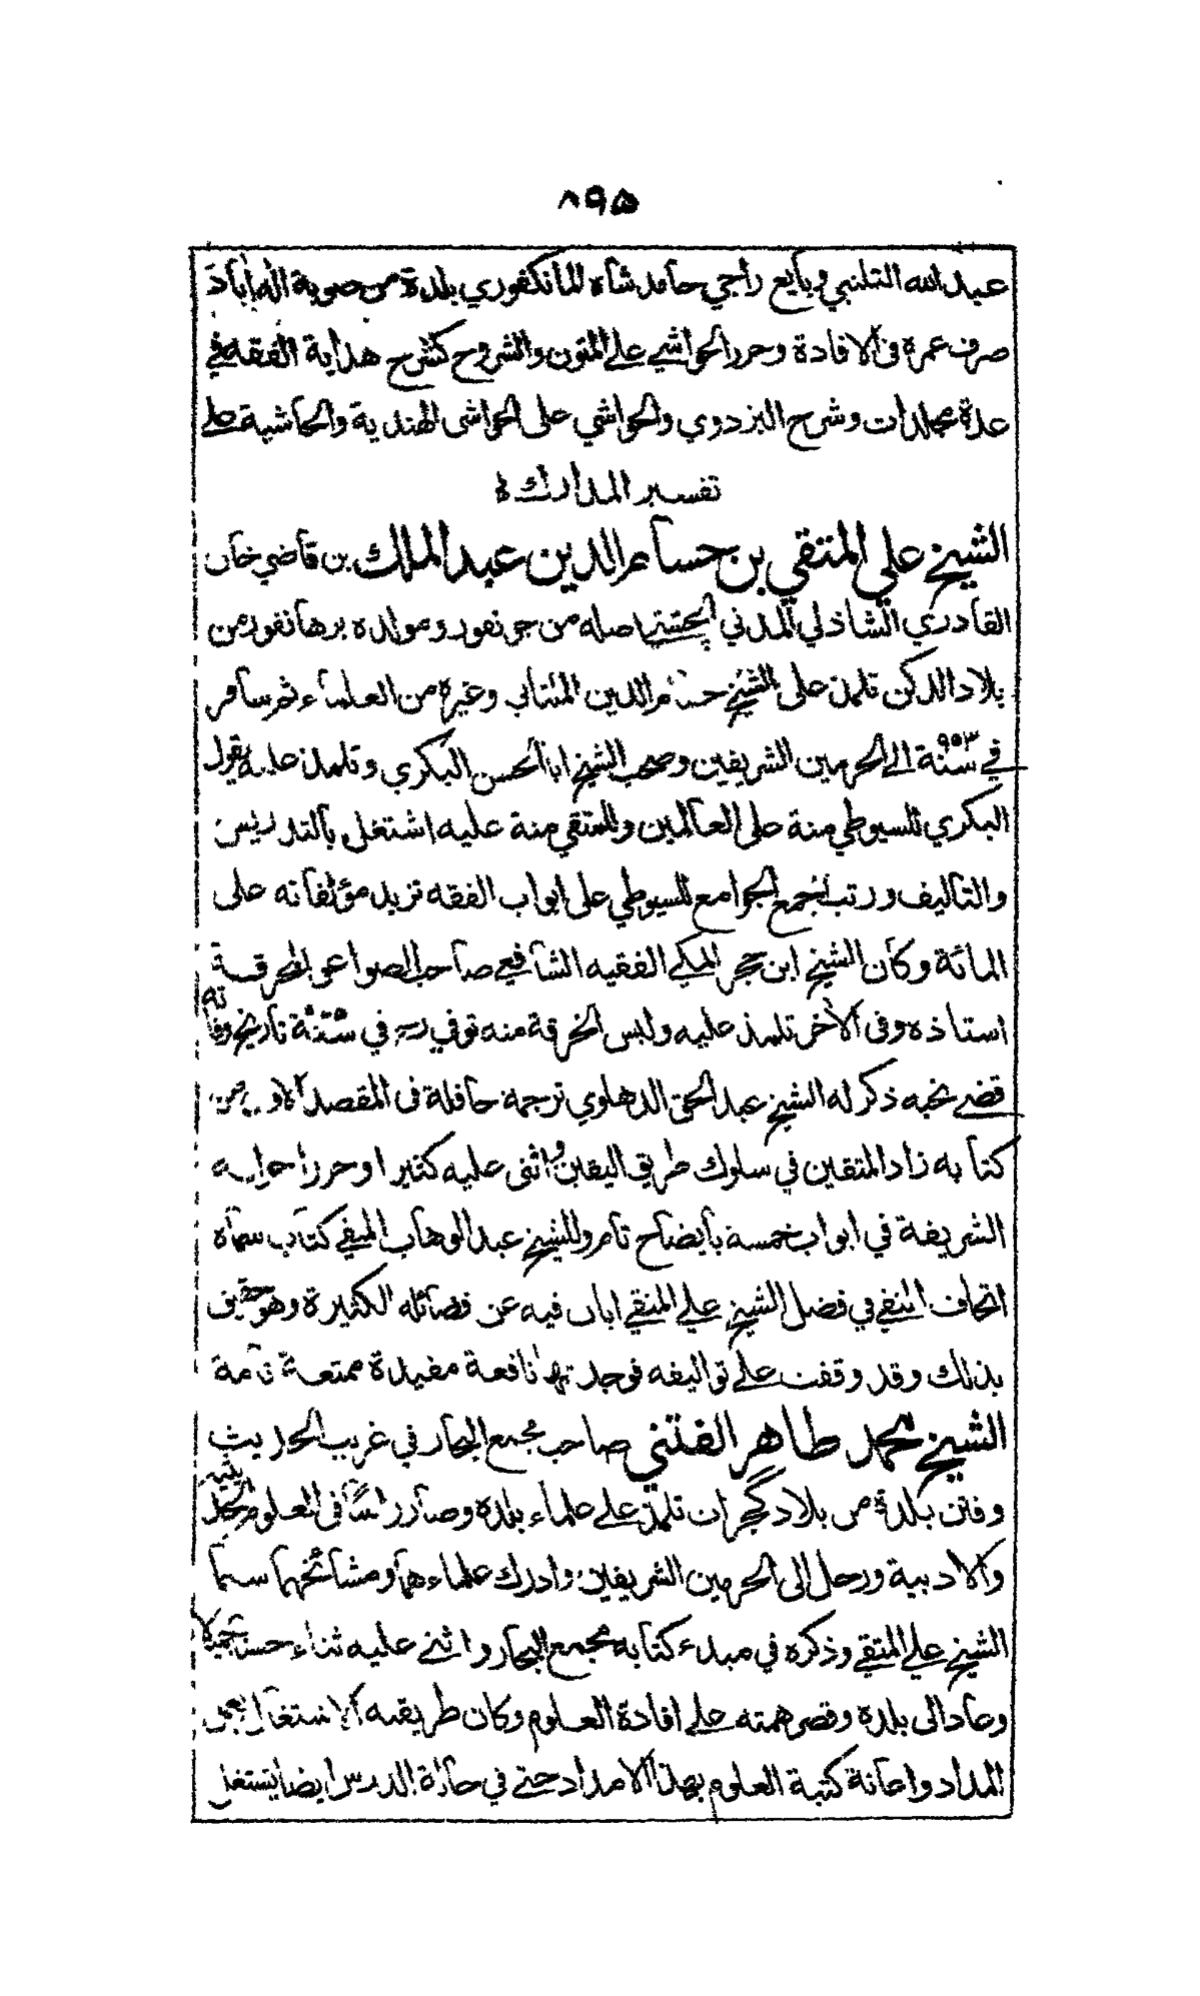 ٨٩٥
عبد الله التلنبي وبايع راجي حامد شاه المانكفوري بلدة من صوبة اله اباد
صرف عمره في الافادة وحرر الحواشي على المتون والشروح كشرح هداية الفقه في
عدة مجلدات وشرح البزدوي والحواشي على الحواشى الهندية والحاشية على
تفسير المدارك
الشيخ علي المتقي بن حسام الدين عبد الملك بن قاضي خان
القادري الشاذلي المدني الچشتي اصله من جونفور ومولده برهانفور من
بلاد الدكن تلمذ على الشيخ حسام الدين الملتاني وغيره من العلماء ثم سافر
في سنة ٩٥٣ الى الحرمين الشريفين وصحب الشيخ ابا الحسن البكري وتلمذ عليه يقول
البكري للسيوطي منة على العالمين وللمتقي منة عليه اشتغل بالتدريس
والتاليف ورتب جمع الجوامع للسيوطي على ابواب الفقه تزيد مؤلفاته على
المائة وكان الشيخ ابن حجر المكي الفقيه الشافعي صاحب الصواعق المحرقة
استاذه وفى الآخر تلمذ عليه ولبس الخرقة منه توفي رح في سنة تاريخ وفاته
قضى نحبه ذكر له الشيخ عبد الحق الدهلوي ترجمة حافلة فى المقصد الاول من
كتابه زاد المتقين في سلوك طريق اليقين واثنى عليه كثيرا وحرر احواله
الشريفة في ابواب خمسة بايضاح تام وللشيخ عبد الوهاب المتقي كتاب سماه
اتحاف التقي في فضل الشيخ علي المتقي ابان فيه عن فضائله الكثيرة وهو حقيق
بذلك وقد وقفت على تواليفه فوجدتها نافعة مفيدة ممتعة تامة
الشيخ محمد طاهر الفتني صاحب مجمع البحار في غريب الحديث
وفتن بلدة من بلاد گجرات تلمذ على علماء بلده وصار راسًا فى العلوم الحديثية
والادبية ورحل الى الحرمين الشريفين وادرك علماءهما ومشائخهما سيما
الشيخ علي المتقي وذكره في مبدء كتابه مجمع البحار واثنى عليه ثناء حسنا جميلا
وعاد الى بلده وقصر همته على افادة العلوم وكان طريقه الاشتغال بعمل
المداد واعانة كتبة العلوم بهذا الامداد حتى في حالة الدرس ايضا يشتغل